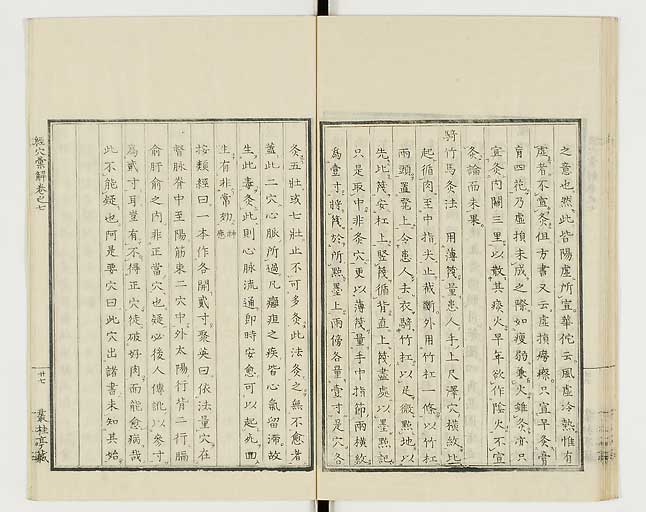 之意也然此皆陽虛所宜華佗云風虛冷熱惟有
虛者不宜灸但方書又云虛損癆瘵只宜早灸膏
肓四花乃虛損未成之際如瘦弱兼火雖灸亦只
宜灸內關三里以散其痰火早年欲作陰火不宜
灸論而未果
騎竹馬灸法 用薄篾量患人手上尺澤穴橫紋比
起循肉至中指尖止截斷外用竹杠一條以竹杠
兩頭置凳上令患人去衣騎竹杠以足微點地以
先比篾安杠上竪篾循背直上篾盡處以墨點記
只是取中非灸穴更以薄篾量手中指節兩橫紋
為壹寸將篾於所點墨上兩傍各量壹寸是穴各
灸五壯或七壯止不可多灸此法灸之無不愈者
蓋此二穴心脈所過凡癰疽之疾皆心氣留滯故
生此毒灸此則心脈流通即時安愈可以起死回
生有非常効
按類經曰一本作各開貳寸聚英曰依法量穴在
督脈脊中至陽筋束二穴中外太陽行背二行膈
俞肝俞之內非正當穴也疑必後人傳訛以參寸
為貳寸耳豈有不得正穴徒破好肉而能愈病哉
此不能疑也阿是要穴曰此穴出諸書未知其始
經穴彙解卷之七
廿七
叢桂亭藏